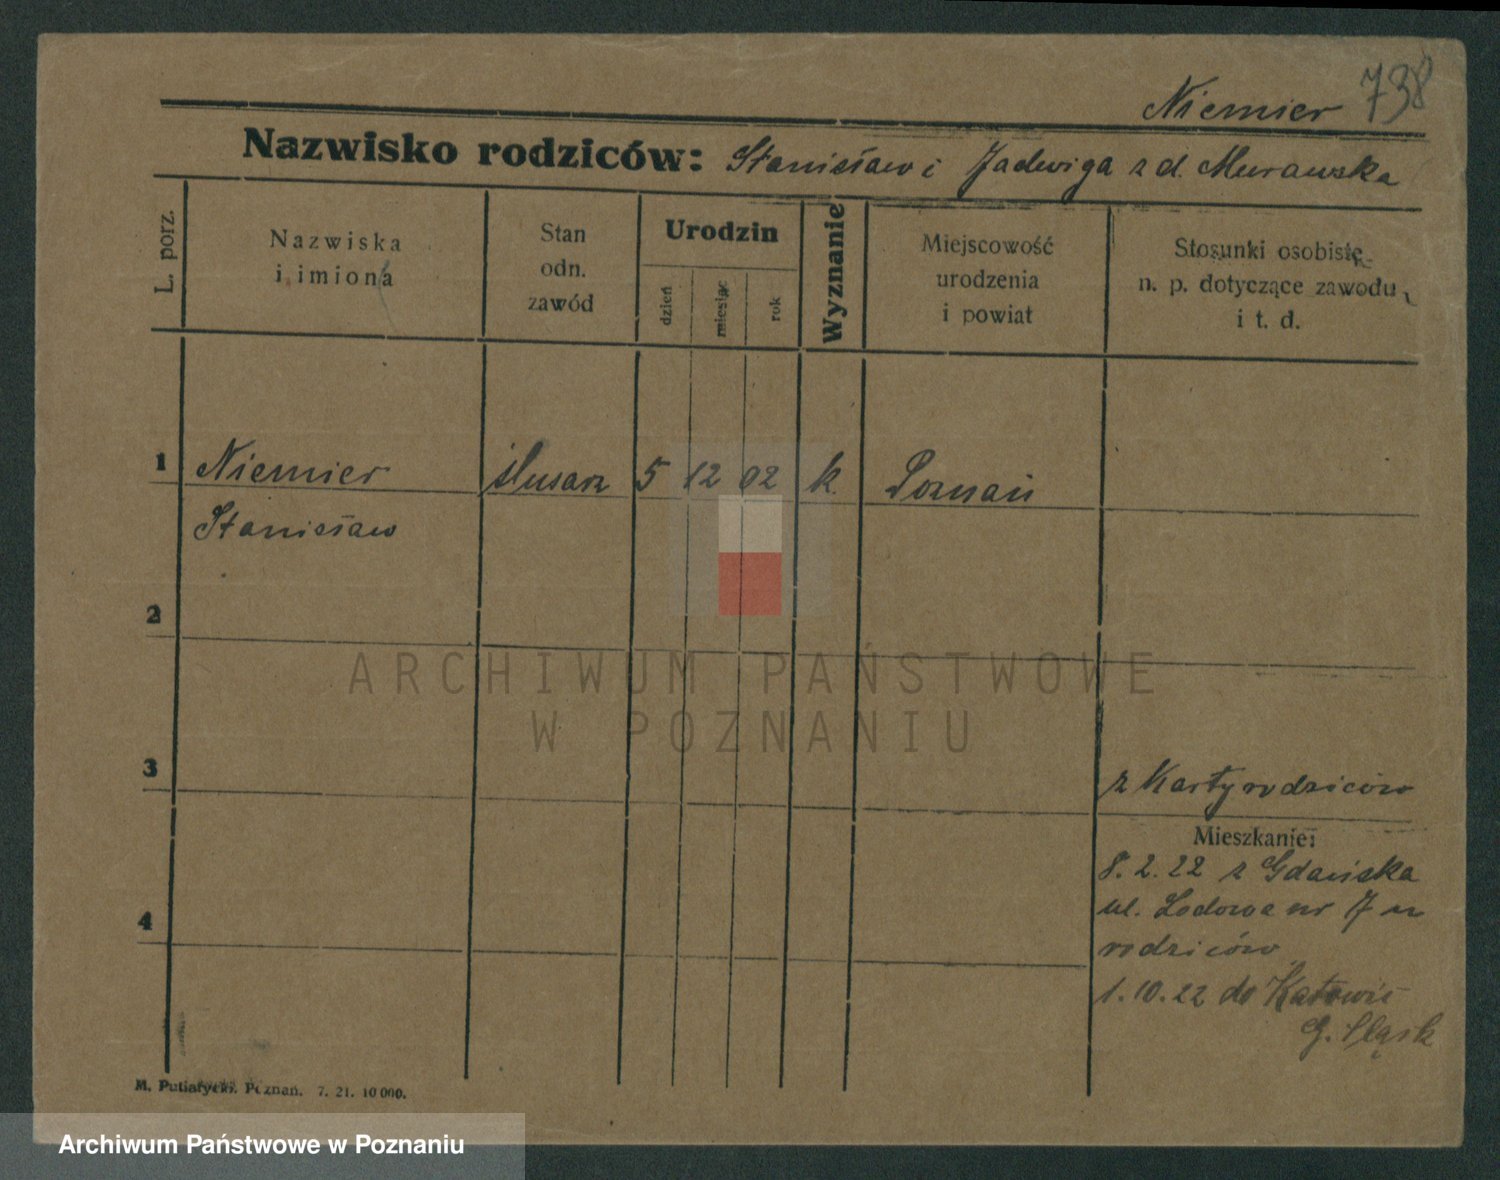 Niemier 738
Nazwisko rodziców: Stanisław i Jadwiga z d. Murawska
L. porz.
Nazwiska
i imiona
Stan
odn.
zawód
Urodzin
dzień
miesiąc
rok
Wyznanie
Miejscowość
urodzenia
i powiat
Stosunki osobiste
n. p. dotyczące zawodu
i t. d.
1 Niemier ślusarz 5 12 02 k. Poznań
Stanisław
2
ARCHIWUM PAŃSTWOWE
W POZNANIU
3
z Karty rodziców
Mieszkanie:
8. 2. 22 z Gdańska
4
ul. Lodowa nr 7 u
rodziców
1. 10. 22 do Katowic
G. Śląsk
M. Putiatycki. Poznań. 7. 21. 10 000.
Archiwum Państwowe w Poznaniu